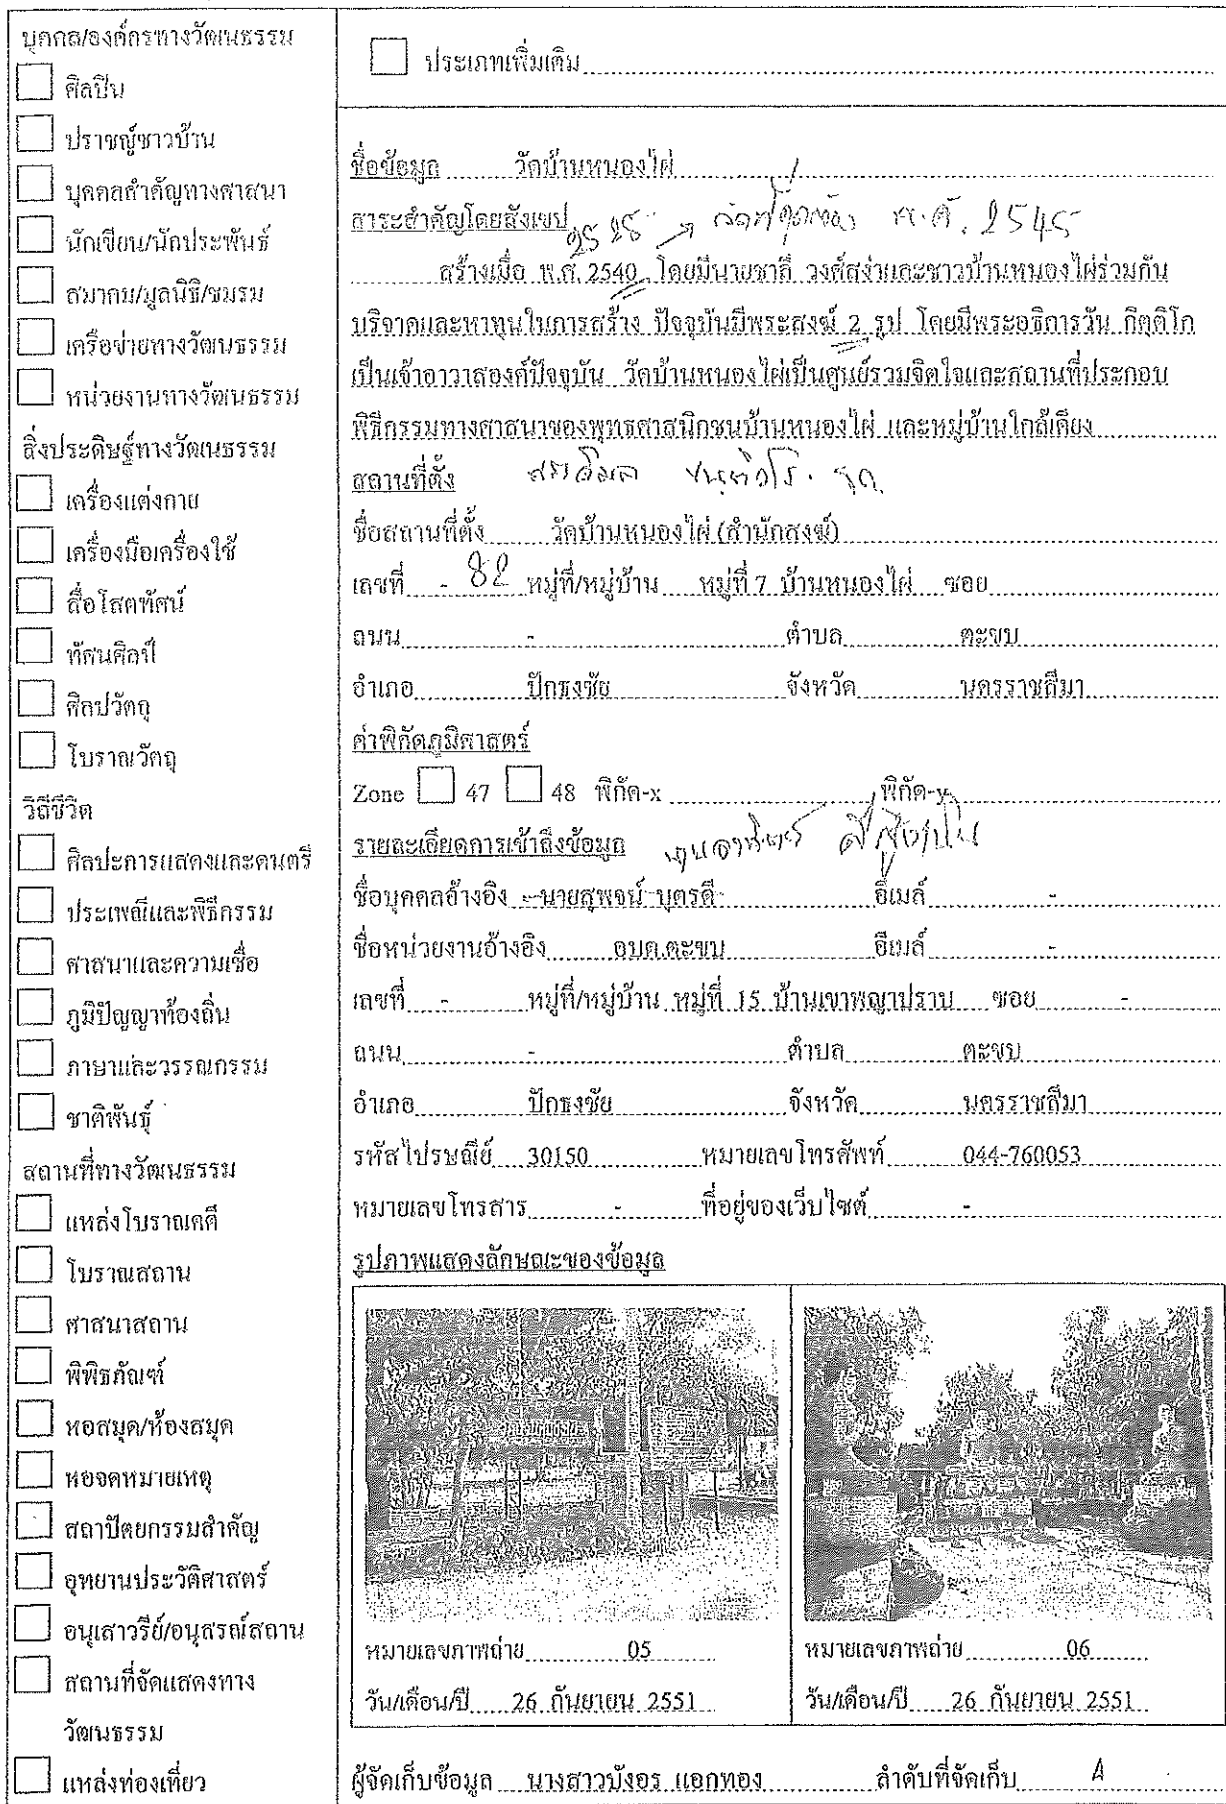 บุคคล/องค์กรทางวัฒนธรรม
ศิลปิน
ปราชญ์ชาวบ้าน
บุคคลสำคัญทางศาสนา
นักเขียน/นักประพันธ์
สมาคม/มูลนิธิ/ชมรม
เครือข่ายทางวัฒนธรรม
หน่วยงานทางวัฒนธรรม
สิ่งประดิษฐ์ทางวัฒนธรรม
เครื่องแต่งกาย
เครื่องมือเครื่องใช้
สื่อโสตทัศน์
ทัศนศิลป์
ศิลปวัตถุ
โบราณวัตถุ
วิถีชีวิต
ศิลปะการแสดงและดนตรี
ประเพณีและพิธีกรรม
ศาสนาและความเชื่อ
ภูมิปัญญาท้องถิ่น
ภาษาและวรรณกรรม
ชาติพันธุ์
สถานที่ทางวัฒนธรรม
แหล่งโบราณคดี
โบราณสถาน
ศาสนาสถาน
พิพิธภัณฑ์
หอสมุด/ห้องสมุด
หอจดหมายเหตุ
สถาปัตยกรรมสำคัญ
อุทยานประวัติศาสตร์
อนุเสาวรีย์/อนุสรณ์สถาน
สถานที่จัดแสดงทาง
วัฒนธรรม
แหล่งท่องเที่ยว
ประเภทเพิ่มเติม
ชื่อข้อมูล วัดบ้านหนองไผ่
สาระสำคัญโดยสังเขป 2528 → พ.ศ. 2545
สร้างเมื่อ พ.ศ. 2540 โดยมีนายชาลี วงศ์สง่าและชาวบ้านหนองไผ่ร่วมกัน
บริจาคและหาทุนในการสร้าง ปัจจุบันมีพระสงฆ์ 2 รูป โดยมีพระอธิการวัน กิตฺติโก
เป็นเจ้าอาวาสองค์ปัจจุบัน วัดบ้านหนองไผ่เป็นศูนย์รวมจิตใจและสถานที่ประกอบ
พิธีกรรมทางศาสนาของพุทธศาสนิกชนบ้านหนองไผ่ และหมู่บ้านใกล้เคียง
สถานที่ตั้ง
ชื่อสถานที่ตั้ง วัดบ้านหนองไผ่ (สำนักสงฆ์)
เลขที่ - 82 หมู่ที่/หมู่บ้าน หมู่ที่ 7 บ้านหนองไผ่ ซอย
ถนน - ตำบล ตะขบ
อำเภอ ปักธงชัย จังหวัด นครราชสีมา
ค่าพิกัดภูมิศาสตร์
Zone 47 48 พิกัด-x พิกัด-y
รายละเอียดการเข้าถึงข้อมูล
ชื่อบุคคลอ้างอิง นายสุพจน์ บุตรดี อีเมล์ -
ชื่อหน่วยงานอ้างอิง อบต.ตะขบ อีเมล์ -
เลขที่ - หมู่ที่/หมู่บ้าน หมู่ที่ 15 บ้านเขาพญาปราบ ซอย -
ถนน - ตำบล ตะขบ
อำเภอ ปักธงชัย จังหวัด นครราชสีมา
รหัสไปรษณีย์ 30150 หมายเลขโทรศัพท์ 044-760053
หมายเลขโทรสาร - ที่อยู่ของเว็บไซต์ -
รูปภาพแสดงลักษณะของข้อมูล
หมายเลขภาพถ่าย 05
วัน/เดือน/ปี 26 กันยายน 2551
หมายเลขภาพถ่าย 06
วัน/เดือน/ปี 26 กันยายน 2551
ผู้จัดเก็บข้อมูล นางสาวบังอร แอกทอง ลำดับที่จัดเก็บ A